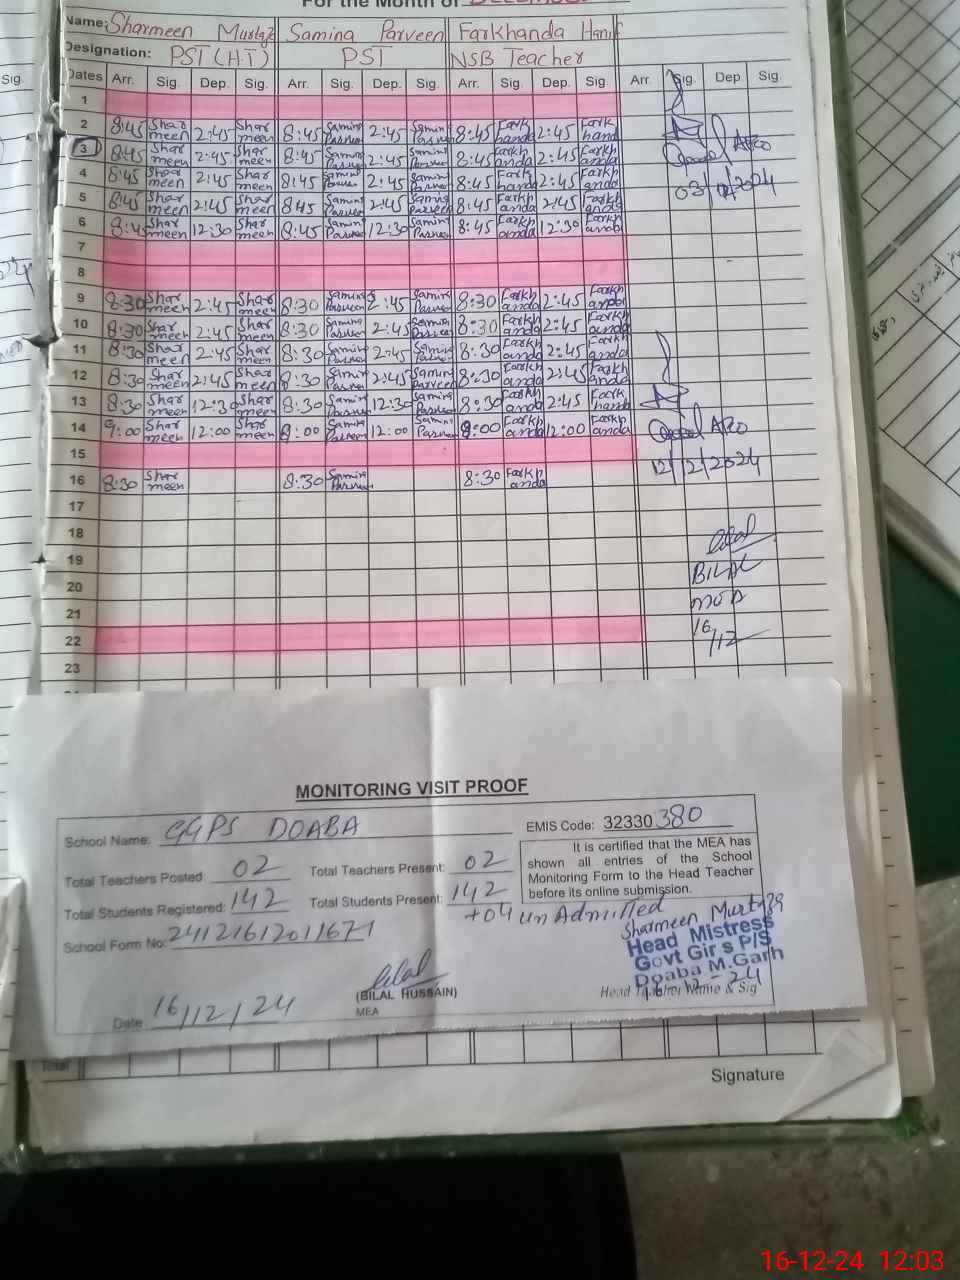 For the Month of December
Name: Sharmeen Murtaza Samina Parveen Farkhanda Hanif
Designation: PST (H.T) PST NSB Teacher
Sig.
Dates Arr. Sig. Dep. Sig. Arr. Sig. Dep. Sig. Arr. Sig. Dep. Sig. Arr. Sig. Dep. Sig.
1
2 8:45 Sharmeen 2:45 Sharmeen 8:45 Samina Parveen 2:45 Samina Parveen 8:45 Farkhanda 2:45 Farkhanda
3 8:45 Sharmeen 2:45 Sharmeen 8:45 Samina Parveen 2:45 Samina Parveen 8:45 Farkhanda 2:45 Farkhanda AEO
4 8:45 Sharmeen 2:45 Sharmeen 8:45 Samina Parveen 2:45 Samina Parveen 8:45 Farkhanda 2:45 Farkhanda 03/12/2024
5 8:45 Sharmeen 2:45 Sharmeen 8:45 Samina Parveen 2:45 Samina Parveen 8:45 Farkhanda 2:45 Farkhanda
6 8:45 Sharmeen 12:30 Sharmeen 8:45 Samina Parveen 12:30 Samina Parveen 8:45 Farkhanda 12:30 Farkhanda
7
8
9 8:30 Sharmeen 2:45 Sharmeen 8:30 Samina Parveen 2:45 Samina Parveen 8:30 Farkhanda 2:45 Farkhanda
10 8:30 Sharmeen 2:45 Sharmeen 8:30 Samina Parveen 2:45 Samina Parveen 8:30 Farkhanda 2:45 Farkhanda
11 8:30 Sharmeen 2:45 Sharmeen 8:30 Samina Parveen 2:45 Samina Parveen 8:30 Farkhanda 2:45 Farkhanda
12 8:30 Sharmeen 2:45 Sharmeen 8:30 Samina Parveen 2:45 Samina Parveen 8:30 Farkhanda 2:45 Farkhanda
13 8:30 Sharmeen 12:30 Sharmeen 8:30 Samina Parveen 12:30 Samina Parveen 8:30 Farkhanda 2:45 Farkhanda
14 9:00 Sharmeen 12:00 Sharmeen 9:00 Samina Parveen 12:00 Samina Parveen 9:00 Farkhanda 12:00 Farkhanda AEO
15 12/12/2024
16 8:30 Sharmeen 8:30 Samina Parveen 8:30 Farkhanda
17
18 Bilal
19
20 BILAL
21 MEA
22 16/12
23
MONITORING VISIT PROOF
School Name: GGPS DOABA EMIS Code: 32330380
Total Teachers Posted: 02 Total Teachers Present: 02
It is certified that the MEA has
shown all entries of the School
Monitoring Form to the Head Teacher
before its online submission.
Total Students Registered: 142 Total Students Present: 142
+04 un Admitted
School Form No:
Sharmeen Murtaza
Head Mistress
Govt Girls P/S
Doaba M.Garh
16-12-24
Head Teacher Name & Sig
Bilal
(BILAL HUSSAIN)
MEA
Date 16/12/24
Total
Signature
16-12-24 12:03